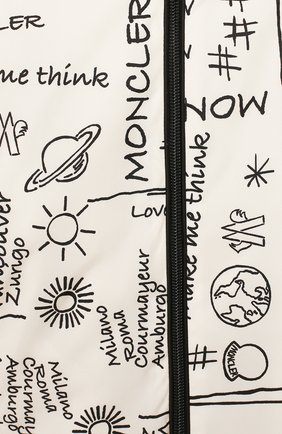 LER
me think
MONCLER
#
#
#
MON
make me think
Love
Zurigo
Milano
Roma
Courmayeur
Amburgo
#
MONCLER
Milano
Roma
Courmay
Amburg